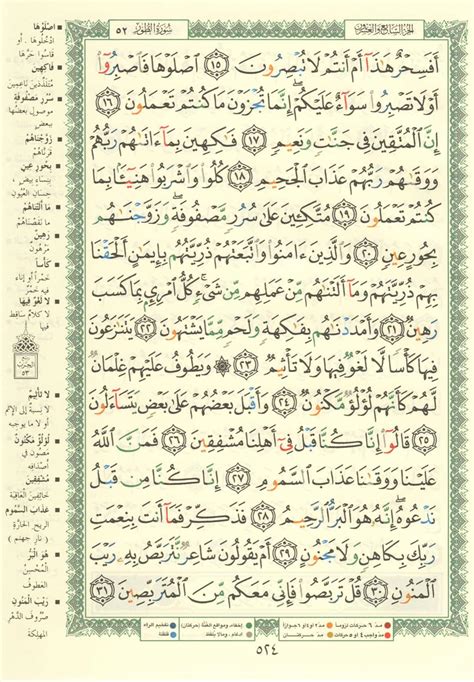 الجُزءُ السَّابِع وَالعِشرُون
سُورَةُ الطُّورِ ٥٢
أَفَسِحْرٌ هَٰذَآ أَمْ أَنتُمْ لَا تُبْصِرُونَ ١٥ ٱصْلَوْهَا فَٱصْبِرُوٓا۟
أَوْ لَا تَصْبِرُوا۟ سَوَآءٌ عَلَيْكُمْ ۖ إِنَّمَا تُجْزَوْنَ مَا كُنتُمْ تَعْمَلُونَ ١٦
إِنَّ ٱلْمُتَّقِينَ فِى جَنَّٰتٍ وَنَعِيمٍ ١٧ فَٰكِهِينَ بِمَآ ءَاتَىٰهُمْ رَبُّهُمْ
وَوَقَىٰهُمْ رَبُّهُمْ عَذَابَ ٱلْجَحِيمِ ١٨ كُلُوا۟ وَٱشْرَبُوا۟ هَنِيٓـًٔۢا بِمَا
كُنتُمْ تَعْمَلُونَ ١٩ مُتَّكِـِٔينَ عَلَىٰ سُرُرٍ مَّصْفُوفَةٍ ۖ وَزَوَّجْنَٰهُم
بِحُورٍ عِينٍ ٢٠ وَٱلَّذِينَ ءَامَنُوا۟ وَٱتَّبَعَتْهُمْ ذُرِّيَّتُهُم بِإِيمَٰنٍ أَلْحَقْنَا
بِهِمْ ذُرِّيَّتَهُمْ وَمَآ أَلَتْنَٰهُم مِّنْ عَمَلِهِم مِّن شَىْءٍ ۚ كُلُّ ٱمْرِئٍۭ بِمَا كَسَبَ
رَهِينٌ ٢١ وَأَمْدَدْنَٰهُم بِفَٰكِهَةٍ وَلَحْمٍ مِّمَّا يَشْتَهُونَ ٢٢ يَتَنَٰزَعُونَ
فِيهَا كَأْسًا لَّا لَغْوٌ فِيهَا وَلَا تَأْثِيمٌ ٢٣ ۞ وَيَطُوفُ عَلَيْهِمْ غِلْمَانٌ
لَّهُمْ كَأَنَّهُمْ لُؤْلُؤٌ مَّكْنُونٌ ٢٤ وَأَقْبَلَ بَعْضُهُمْ عَلَىٰ بَعْضٍ يَتَسَآءَلُونَ
٢٥ قَالُوٓا۟ إِنَّا كُنَّا قَبْلُ فِىٓ أَهْلِنَا مُشْفِقِينَ ٢٦ فَمَنَّ ٱللَّهُ
عَلَيْنَا وَوَقَىٰنَا عَذَابَ ٱلسَّمُومِ ٢٧ إِنَّا كُنَّا مِن قَبْلُ
نَدْعُوهُ ۖ إِنَّهُۥ هُوَ ٱلْبَرُّ ٱلرَّحِيمُ ٢٨ فَذَكِّرْ فَمَآ أَنتَ بِنِعْمَتِ
رَبِّكَ بِكَاهِنٍ وَلَا مَجْنُونٍ ٢٩ أَمْ يَقُولُونَ شَاعِرٌ نَّتَرَبَّصُ بِهِۦ رَيْبَ
ٱلْمَنُونِ ٣٠ قُلْ تَرَبَّصُوا۟ فَإِنِّى مَعَكُم مِّنَ ٱلْمُتَرَبِّصِينَ ٣١
اصْلَوْهَا
ادخُلُوها ، أو
قاسُوا حرَّها
فاكِهِين
مُتلذِّذين ناعِمِين
سُرُرٍ مَصْفُوفَةٍ
موصولٍ بعضُها
ببعض
زوَّجْنَاهُمْ
قرنَّاهُمْ
بِحُورٍ عِينٍ
حِسان العُيُون
مَا أَلَتْنَاهُمْ
ما نقصْناهُم
رَهِينٌ
مَرْهُونٌ
كَأْسًا
خمرًا أو إناء
فيه خمْرٌ
لا لَغْوٌ فِيهَا
لا كلامٌ ساقِط
فيها
الحِزب
٥٣
لا تَأْثِيمٌ
لا نِسبةٌ إلى الإثم
أو لا ما يوجبه
لُؤْلُؤٌ مَكْنُونٌ
مصُونٌ في
أصدافِه
مُشْفِقِينَ
خائِفين العَاقِبة
عَذَابَ السَّمُومِ
الريح الحارَّة
( نار جهنم )
هُوَ الْبَرُّ
المُحْسِنُ
العَطوفُ
رَيْبَ الْمَنُونِ
صُروفَ الدَّهْرِ
المهلِكة
مدّ ٦ حركات لزوماً
مدّ ٢ أو ٤ أو ٦ جوازاً
إخفاء، ومواقع الغُنَّة (حركتان)
تفخيم الراء
مدّ واجب ٤ أو ٥ حركات
مدّ حركتان
إدغام ، وما لا يُلفَظ
قلقلة
٥٢٤